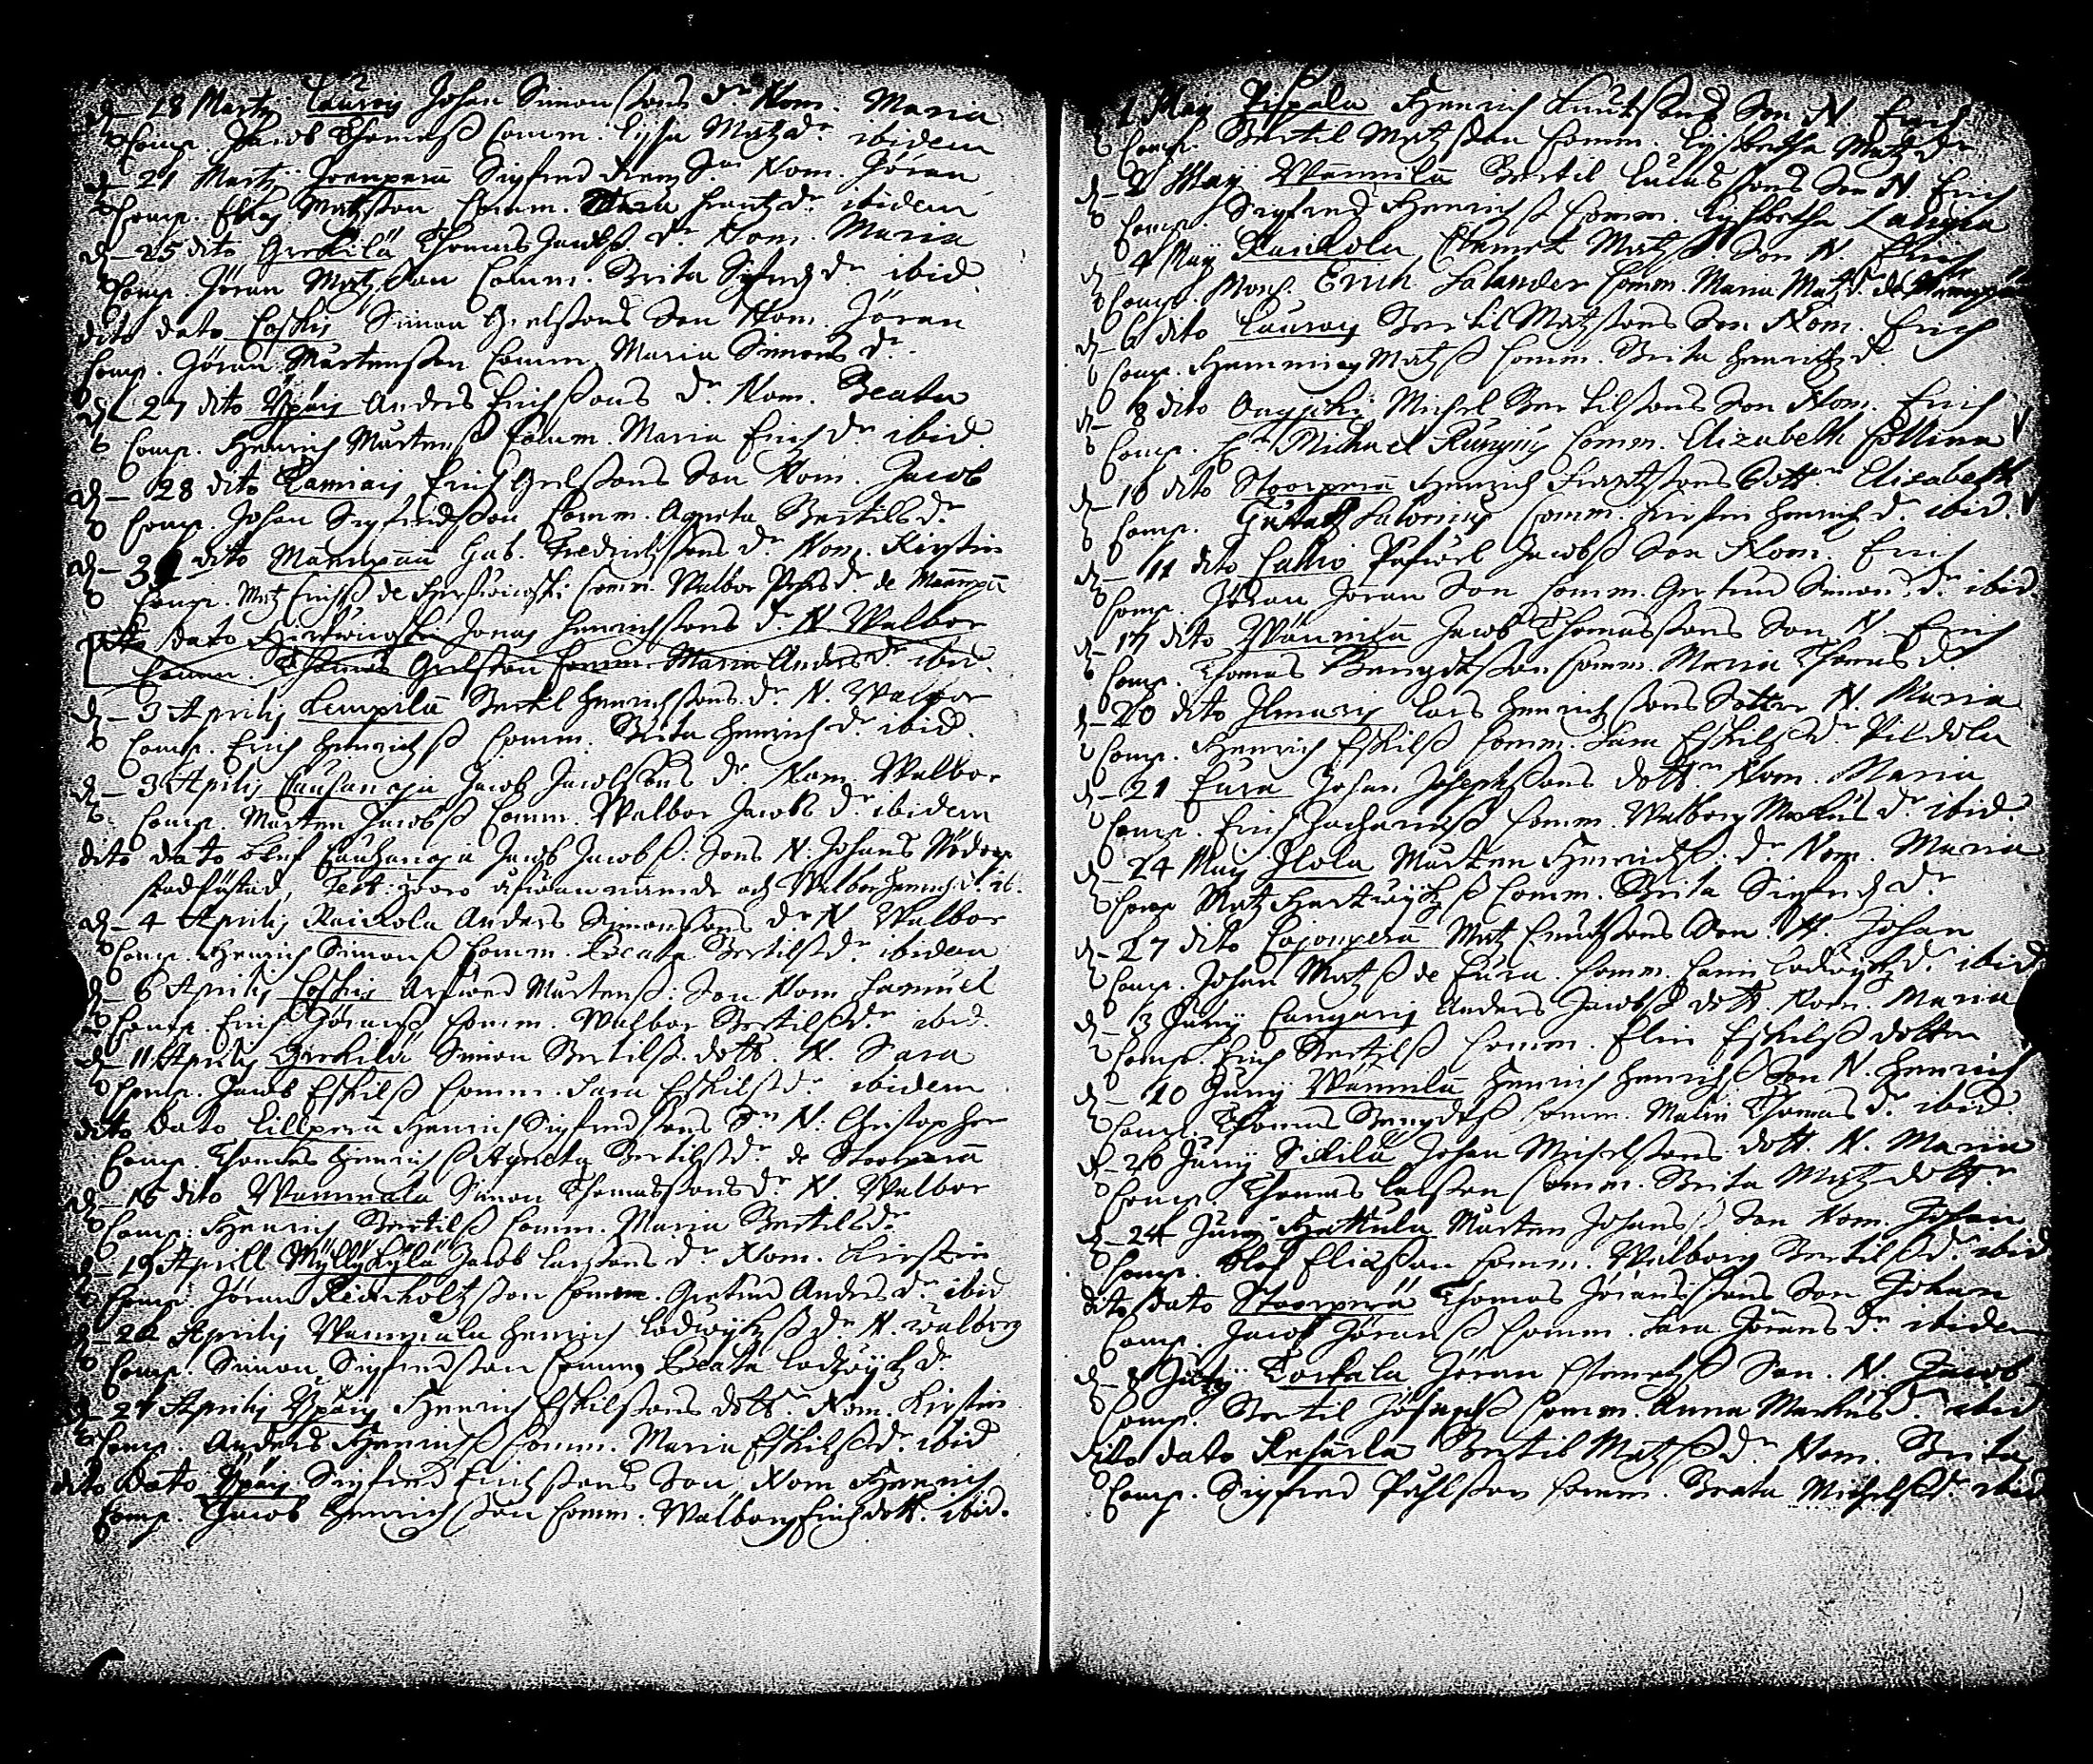 D. 18 Martij Lauroij Johan Simonssons dr. Nom. Maria
Comp. Jacob Thomæß Comm. Lijsa Matzdr. ibidem
D. 21 Martij Joenperä Sigfred Sr. Nom. Jöran
Comp. Elias Matzson Comm. Frantzdr. ibidem
D. 25 dito Grekilä Thomas Jacobß dr. Nom. Maria
Comp. Jöran Matzson Comm. Brita Sigfredzdr. ibid.
dito dato Coskij Simon Grelssons Son Nom. Jöran
Comp. Jöran Mårtensson Comm. Maria Simonsdr.
D. 27 dito Ypäij Anders Erichssons dr. Nom. Beata
Comp. Henrich Mårtenß Comm. Maria Erichsdr. ibid.
D. 28 dito Lamiais Erich Grelssons Son Nom. Jacob
Comp. Johan Sigfredsson Comm. Agneta Bertilsdr.
D. 31 dito Mannpää Gab. Fredrichssons dr. Nom. Kirstin
Comp. Matz Erichß de Comm. Walbor dr. de Mannpä
dito dato Jonas Henrichssons dr. N. Walbor
Comm. Thomas Grelsson Comm. Maria Andersdr. ibid.
D. 3 Aprilis Lempilä Bertil Henrichssons dr. N. Walbor
Comp. Erich Henrichß Comm. Brita Henrichdr. ibid.
D. 3 Aprilis Cauhanoja Jacob Jacobssons dr. Nom. Walbor
Comp. Mårten Jacobß Comm. Walbor Jacobsdr. ibidem
dito dato Cauhanoja Jacob Jacobß: Sons N. Johans Nödop
stadfästad, Test: woro ofwannämde och Walbor Henrichsd. ib.
D. 4 Aprilis Raickola Anders Simonssons dr. N. Walbor
Comp. Henrich Simonß Comm. Beata Bertilsdr. ibidem
D. 6 Aprilis Coskis Arfwed Mårtenß: Son Nom. Samuel
Comp. Erich Jöranß Comm. Walbor Bertilsdr. ibid.
D. 11 Aprilis Grekilä Simon Bertilß. dott. N. Sara
Comp. Jacob Eskilß Comm. Sara Eskilsdr. ibidem
dito dato Lillperä Henrich Sigfredssons Sn. N. Christopher
Comp. Thomas Henrichß Agneta Bertilsdr. de Stoorperä
D. 16 dito Wammala Simon Thomassonsdr. N. Walbor
Comp. Henrich Bertilß Comm. Maria Bertilsdr.
D. 19 Aprill Myllykylä Jacob Larssons dr. Nom. Kirstin
Comp. Jöran Reinholtzson Comm. Gertrud Andersdr. ibid
D. Aprilis Wammala Henrich Lodwijkß dr. N. Walborg
Comp. Simon Sigfredsson Comm. Beata Lodwijkzdr.
D. 24 Aprilis Ypäis Henrich Eskilssons dott. Nom. Kirstin
Comp. Anders Henrichß Comm. Maria Eskilsdr. ibid
dito dato Ypäis Sigfred Erichssons Son, Nom Henrich
Comp. Jacob Henrichsson Comm. Walborg Erichdott. ibid.
1 Maij Pispala Henrich Knutssons Son N Erich
Comp. Bertil Matzson Comm. Lijsbetha Matzdr
D. 2 Maij Wännilä Bertil Lucassons Son N. Erich
Comp. Sigfred Henrichß Comm. Lijsbetha
D. 4 Maij Raickola Clemet Matzß. Son N. Erich
Comp. Mons. Erich Salander Comm. Maria Matzdr. de
D. 6 dito Lauroij Bertil Matzsons Son Nom. Erich
Comp. Hemming Matzß Comm. Brita Henrichzdr.
D. 8 dito Michel Bertilssons Son Nom. Erich
Comp. Hr. Michael Comm. Elizabeth Collina
D. 10 dito Stoorperä Henrich Frantzsons dottr. Elizabeth
Comp. Gustaf Salonius Comm. Kirstin Henrichdr. ibid.
D. 11 dito Callis Påwel Jacobß Son Nom. Erich
Comp. Jöran Jöran Son Comm. Gertrud Simonsdr. ibid
D. 17 dito Wännilä Jacob Thomassons Son N Erich
Comp. Thomas Bengdtsson Comm. Maria Thomasdr.
D. 20 dito Ilmaris Lars Henrichssons Dotter N. Maria
Comp. Henrich Eskilß Comm. Sara Eskilsdr. Pildola
D. 21 Eura Johan Josephssons dottr. Nom. Maria
Comp. Erich Zachariæß Comm. Walborg Markusdr. ibid.
D. 24 Maij Ilola Mårten Henrichß. dr. Nom. Maria
Comp. Matz Hartwijkß Comm. Brita Sigfredzdr
D. 27 dito Cojonperä Matz Knutssons Son N. Johan
Comp. Johan Matzß de Eura. Comm. Carin Lodwijkzdr. ibid
D. 3 Junij Cangaris Anders Jacobß dott. Nom. Maria
Comp. Erich Bertilß Comm. Elin Eskilß dotter
D. 10 Junij Wännilä Henrich Henrichß Son N. Henrich
Comp. Thomas Bengdtß Comm. Malin Thomasdr. ibid.
D. 20 Junij Sikilä Johan Michelssons dott. N. Maria
Comp. Thomas Larsson Comm. Brita Matz dottr
D. 24 Junij Hattula Mårten Johansß Son Nom. Johan
Comp. Olof Eliæsson Comm. Walborg Bertilsdr. ibid
dito dato Stoorperä Thomas Jöranssons Son Johan
Comp. Jacob Jöranß Comm. Sara Jöransdr. ibidem
D. 8 Julij Torkala Jöran Clemetß Son. N. Jacob
Comp. Bertil Josephß Comm. Anna Markusdr. ibid
dito dato Bertil Matzß dr. Nom. Brita
Comp. Sigfred Påhlsson Comm. Beata Michelsdr. ibid